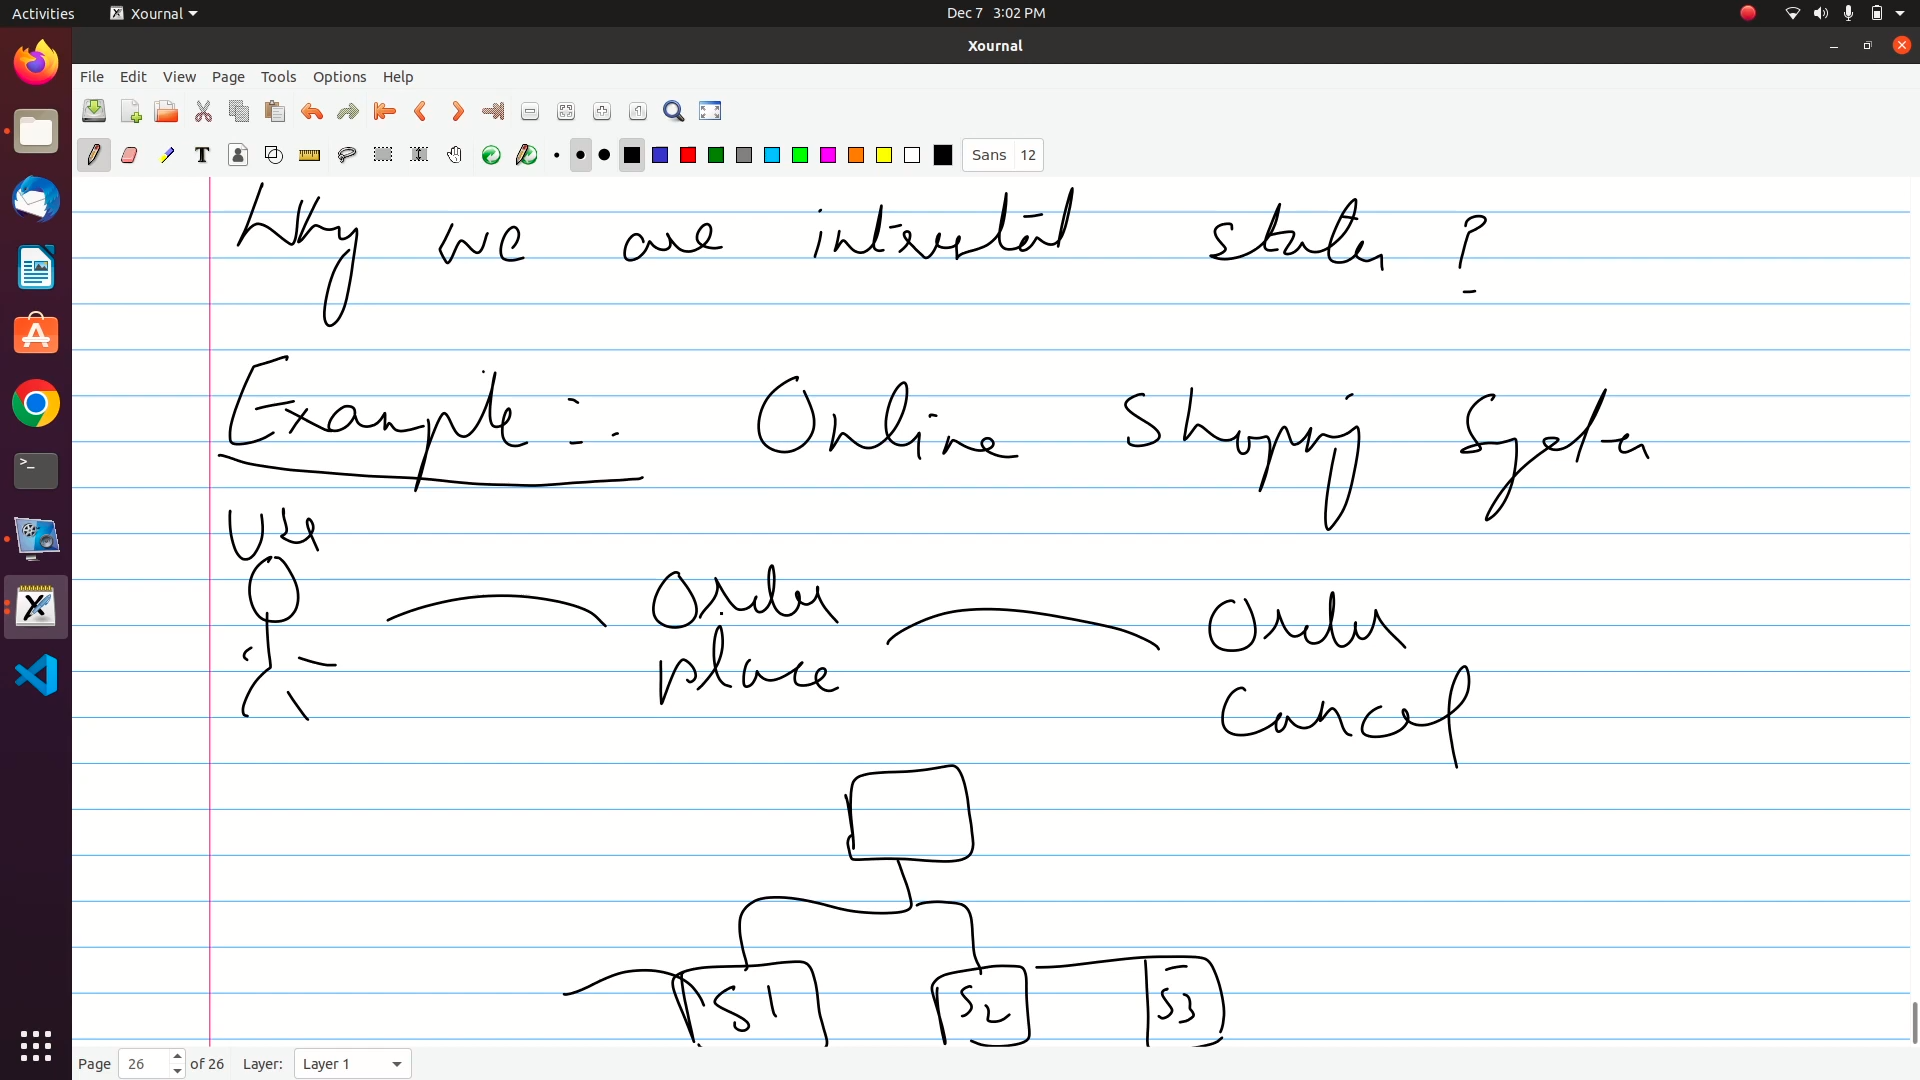 Activities Xournal Dec 7 3:02 PM
Xournal
File Edit View Page Tools Options Help
Sans 12
Why we are interested states ?
Example :- Online Shopping System
User
Order place
Order Cancel
S1 S2 S3
Page 26 of 26 Layer: Layer 1